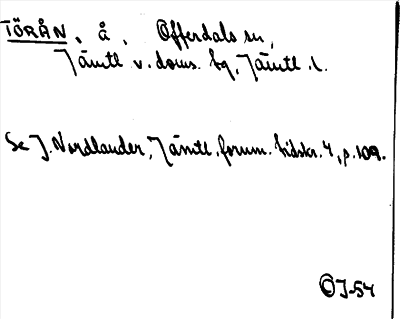 TÖRÅN, å, Offerdals sn,
Jämtl v. doms. hg, Jämtl. l.
Se J. Nordlander, Jämtl. forum. tidskr. 4, p. 109.
OJ-54